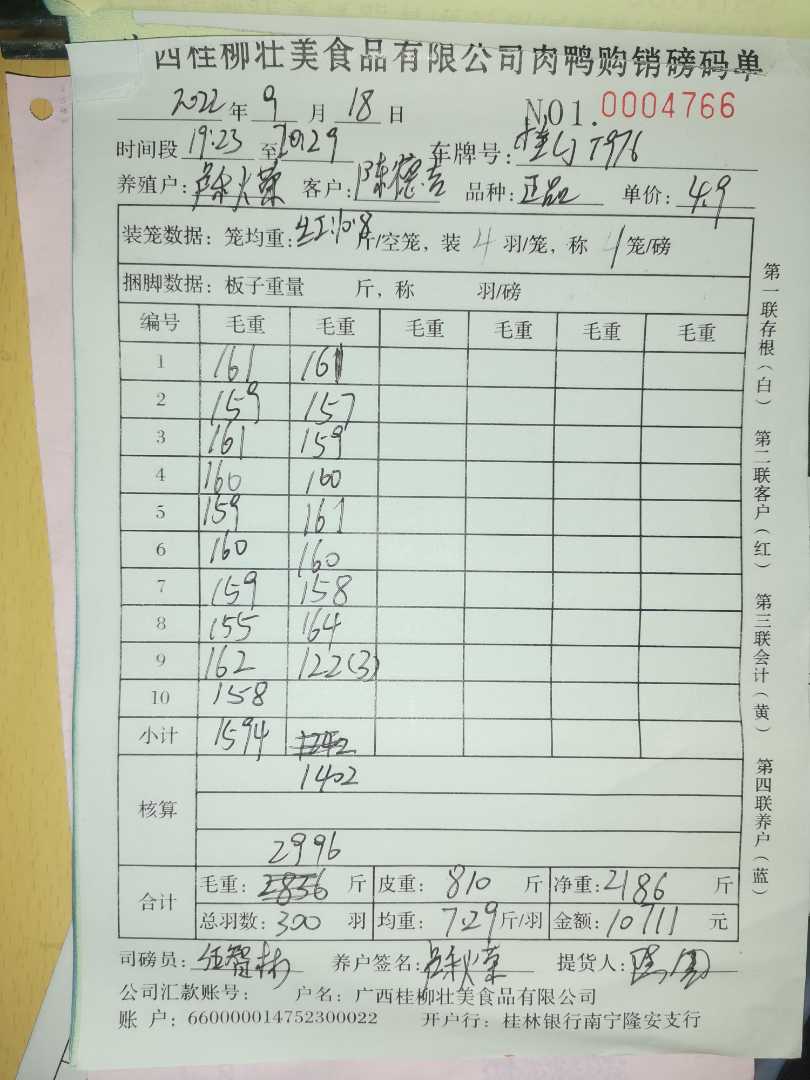 西桂柳壮美食品有限公司肉鸭购销磅码单
2022年9月18日 NO1.0004766
时间段19:23至20:29 车牌号:桂 T976
养殖户: 火荣 客户:陈德吉 品种:正品 单价:4.9
装笼数据:笼均重: 10.8斤/空笼,装4羽/笼,称4笼/磅
捆脚数据:板子重量 斤,称 羽/磅
编号 毛重 毛重 毛重 毛重 毛重 毛重
1 161 161
2 159 157
3 161 159
4 160 160
5 159 161
6 160 160
7 159 158
8 155 164
9 162 122(3)
10 158
小计 1594
1402
核算
2996
合计 毛重: 斤 皮重:810斤 净重:2186斤
总羽数:300羽 均重:7.29斤/羽 金额:10711元
司磅员:伍智彬 养户签名: 火荣 提货人:
公司汇款账号: 户名:广西桂柳壮美食品有限公司
账 户:660000014752300022 开户行:桂林银行南宁隆安支行
第一联存根(白) 第二联客户(红) 第三联会计(黄) 第四联养户(蓝)